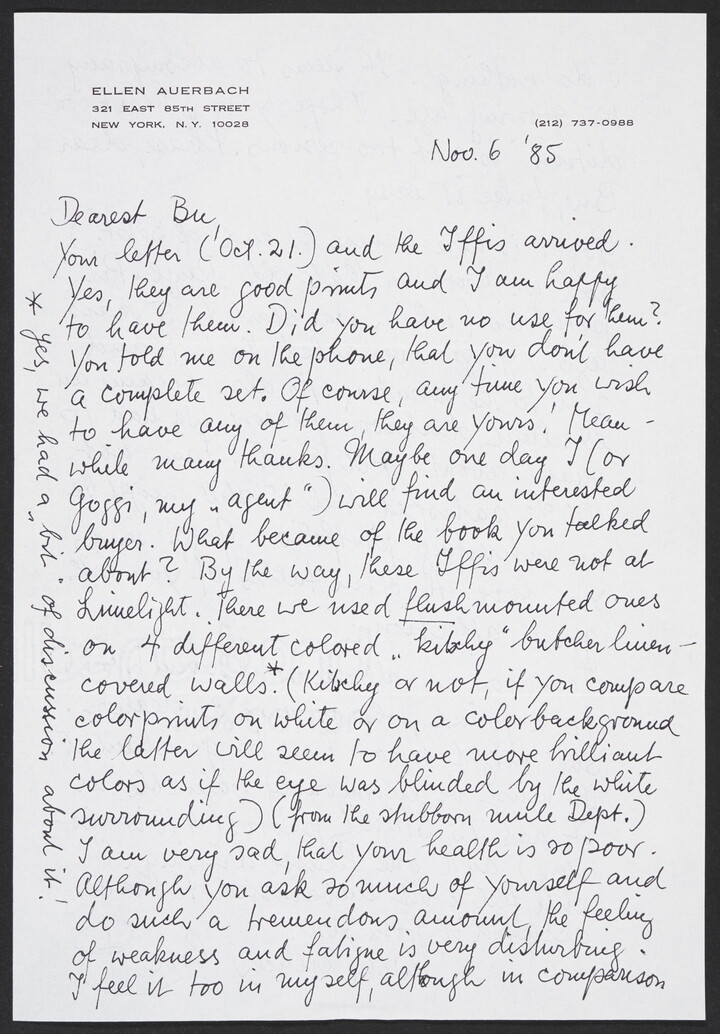 ELLEN AUERBACH
321 EAST 85TH STREET
NEW YORK, N.Y. 10028
(212) 737-0988
Nov. 6 '85
Dearest Bu,
Your letter (Oct. 21.) and the Iffis arrived.
Yes, they are good prints and I am happy
to have them. Did you have no use for them?
You told me on the phone, that you don't have
a complete set. Of course, any time you wish
to have any of them, they are yours! Mean-
while many thanks. Maybe one day I (or
Goggi, my „agent") will find an interested
buyer. What became of the book you talked
about? By the way, these Iffis were not at
Limelight. There we used flushmounted ones
on 4 different colored „kitschy" butcher linen-
covered walls.* (Kitschy or not, if you compare
colorprints on white or on a colorbackground
the latter will seem to have more brilliant
colors as if the eye was blinded by the white
surrounding) (from the stubborn mule Dept.)
I am very sad, that your health is so poor.
Although you ask so much of yourself and
do such a tremendous amount, the feeling
of weakness and fatigue is very disturbing.
I feel it too in myself, although in comparison
* Yes, we had a „bit" of discussion about it!